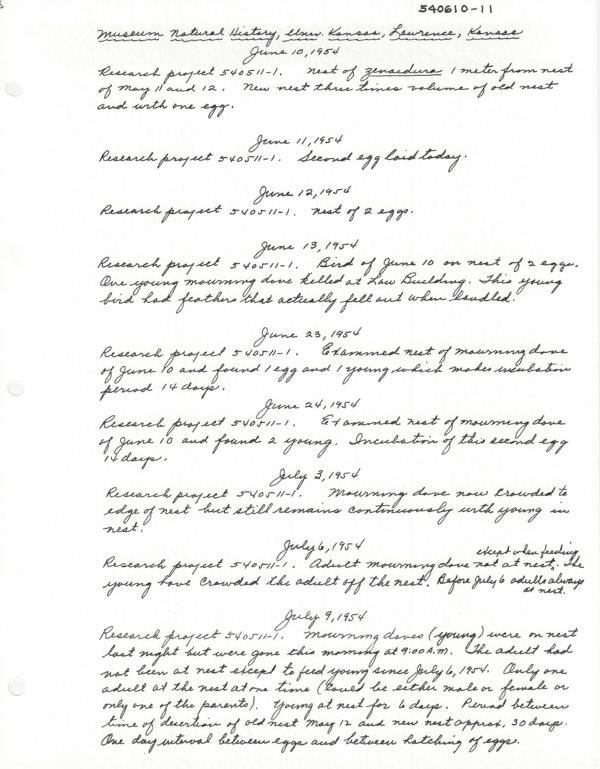 540610-11
Museum Natural History, Univ. Kansas, Lawrence, Kansas
June 10, 1954
Research project 540511-1. Nest of Zenaidura 1 meter from nest
of May 11 and 12. New nest three times volume of old nest
and with one egg.
June 11, 1954
Research project 540511-1. Second egg laid today.
June 12, 1954
Research project 540511-1. Nest of 2 eggs.
June 13, 1954
Research project 540511-1. Bird of June 10 on nest of 2 eggs.
One young mourning dove killed at Law Building. This young
bird had feathers that actually fell out when handled.
June 23, 1954
Research project 540511-1. Examined nest of mourning dove
of June 10 and found 1 egg and 1 young which makes incubation
period 14 days.
June 24, 1954
Research project 540511-1. Examined nest of mourning dove
of June 10 and found 2 young. Incubation of this second egg
14 days.
July 3, 1954
Research project 540511-1. Mourning dove now crowded to
edge of nest but still remains continuously with young in
nest.
July 6, 1954
except when feeding
Research project 540511-1. Adult mourning dove not at nest. The
young have crowded the adult off the nest. Before July 6 adults always
at nest.
July 9, 1954
Research project 540511-1. Mourning doves (young) were on nest
last night but were gone this morning at 9:00 A.M. The adult had
not been at nest except to feed young since July 6, 1954. Only one
adult at the nest at one time (could be either male or female or
only one of the parents). Young at nest for 6 days. Period between
time of desertion of old nest May 12 and new nest approx. 30 days.
One day interval between eggs and between hatching of eggs.